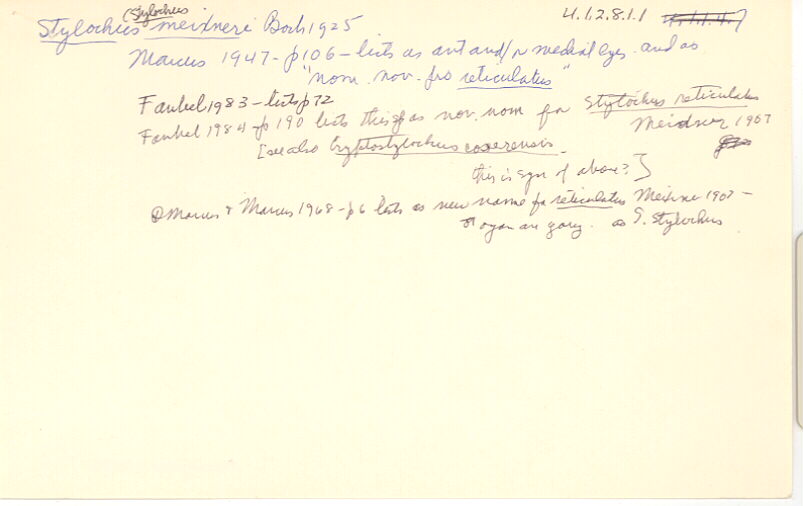 (Stylochus
Stylochus meixneri Bock 1925 4.1.2.8.1.1
Marcus 1947 - p106 - lists as ant and/or medial eyes and as
"nom. nov. pro reticulatus"
Faubel 1983 - lists p72
Faubel 1984 - p 190 lists this sp as nov. nom for Stylochus reticulatus
Meixner 1907
[see also Cryptostylochus
this is syn of above?]
Marcus & Marcus 1968 - p6 lists as new name for reticulatus Meixner 1907 -
as S. Stylochus